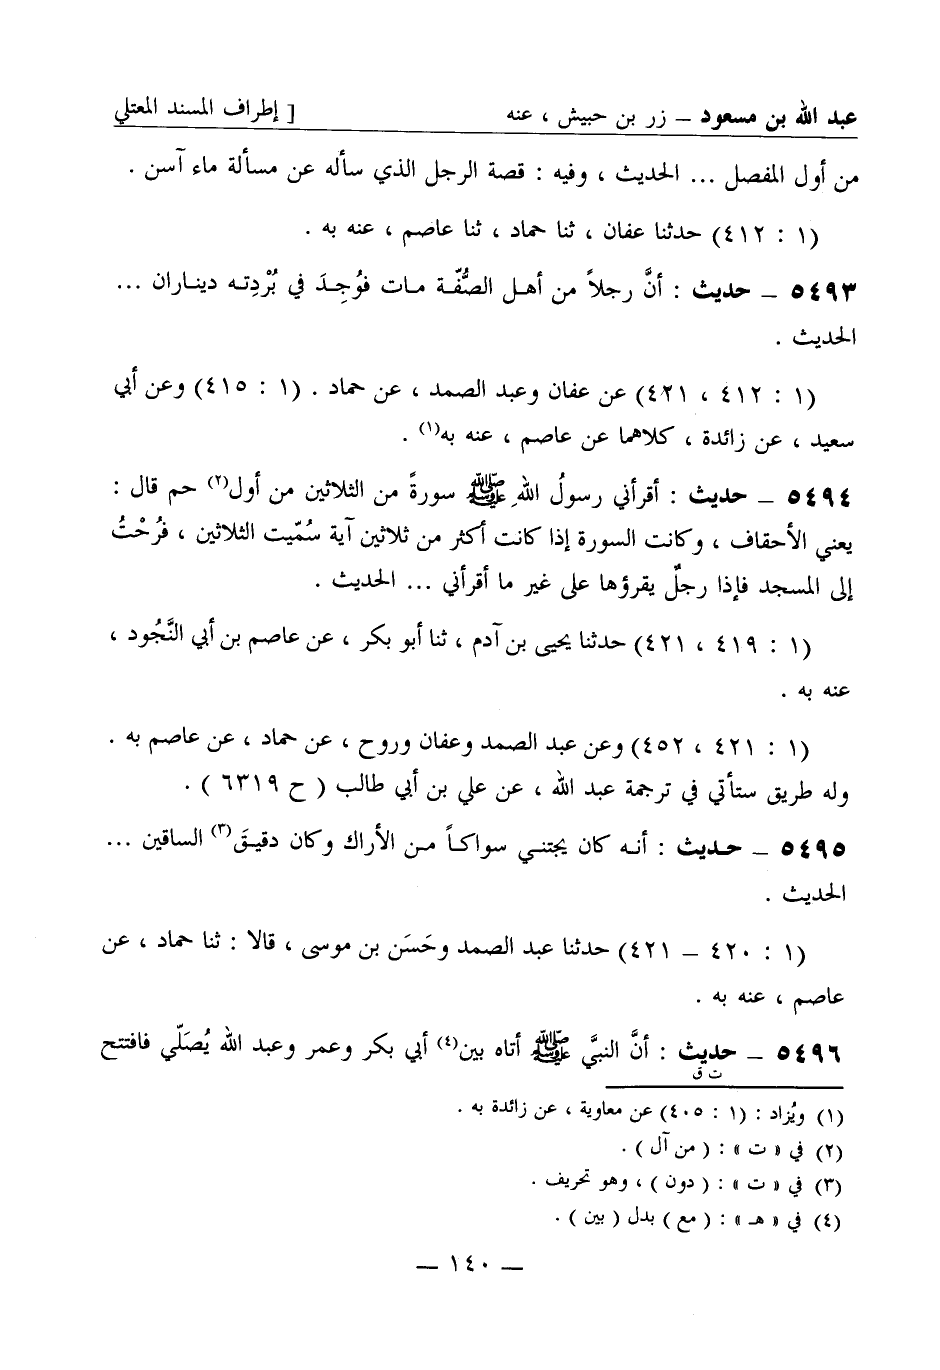 عبد الله بن مسعود – زر بن حبيش ، عنه [ إطراف المسند المعتلي
من أول المفصل ... الحديث ، وفيه : قصة الرجل الذي سأله عن مسألة ماء آسن .
(١ : ٤١٢) حدثنا عفان ، ثنا حماد ، ثنا عاصم ، عنه به .
٥٤٩٣ – حديث : أنَّ رجلاً من أهل الصُّفّة مات فوُجِدَ في بُرْدِته ديناران ...
الحديث .
(١ : ٤١٢ ، ٤٢١) عن عفان وعبد الصمد ، عن حماد . (١ : ٤١٥) وعن أبي
سعيد ، عن زائدة ، كلاهما عن عاصم ، عنه به(١) .
٥٤٩٤ – حديث : أقرأني رسولُ اللهِ ﷺ سورةً من الثلاثين من أول(٢) حم قال :
يعني الأحقاف ، وكانت السورة إذا كانت أكثر من ثلاثين آية سُمّيت الثلاثين ، فرُحْتُ
إلى المسجد فإذا رجلٌ يقرؤها على غير ما أقرأني ... الحديث .
(١ : ٤١٩ ، ٤٢١) حدثنا يحيى بن آدم ، ثنا أبو بكر ، عن عاصم بن أبي النَّجُود ،
عنه به .
(١ : ٤٢١ ، ٤٥٢) وعن عبد الصمد وعفان وروح ، عن حماد ، عن عاصم به .
وله طريق ستأتي في ترجمة عبد الله ، عن علي بن أبي طالب ( ح ٦٣١٩ ) .
٥٤٩٥ – حديث : أنه كان يجتني سواكاً من الأراك وكان دقيقَ(٣) الساقين ...
الحديث .
(١ : ٤٢٠ – ٤٢١) حدثنا عبد الصمد وحَسَن بن موسى ، قالا : ثنا حماد ، عن
عاصم ، عنه به .
٥٤٩٦ – حديث : أنَّ النبيَّ ﷺ أتاه بين(٤) أبي بكر وعمر وعبد الله يُصَلّي فافتتح
ت ق
(١) ويُزاد : (١ : ٤٠٥) عن معاوية ، عن زائدة به .
(٢) في « ت » : ( من آل ) .
(٣) في « ت » : ( دون ) ، وهو تحريف .
(٤) في « هـ » : ( مع ) بدل ( بين ) .
– ١٤٠ –